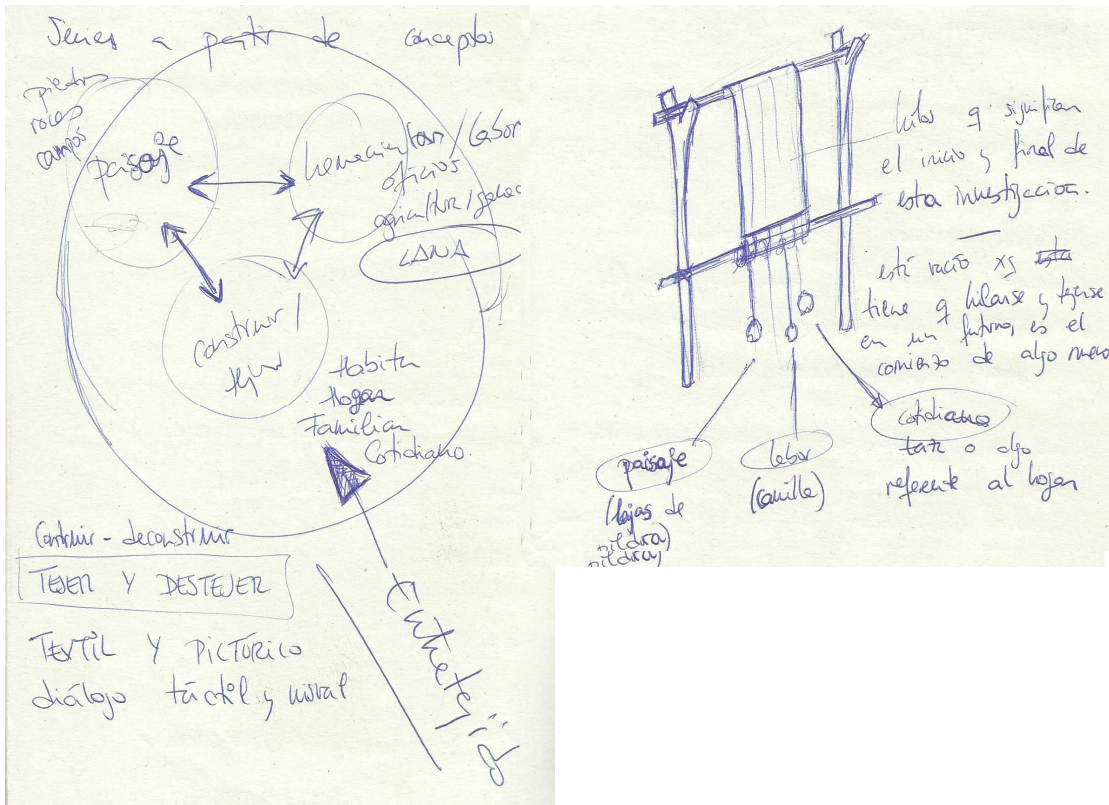 Series a partir de conceptos
piedras
rocas
campos
paisaje
herramientas / labor
oficios
agricultura / ganad
LANA
construir /
tejer
Habitar
Hogar
Familiar
Cotidiano.
Construir - deconstruir
TEJER Y DESTEJER
TEXTIL Y PICTÓRICO
diálogo táctil y visual
Entretejido
hilos q significan
el inicio y final de
esta investigación.
está vacío xq esta
tiene q hilarse y tejerse
en un futuro, es el
comienzo de algo nuevo
paisaje
(lajas de
piedra)
piedra)
labor
(canilla)
cotidiano
o algo
referente al hogar